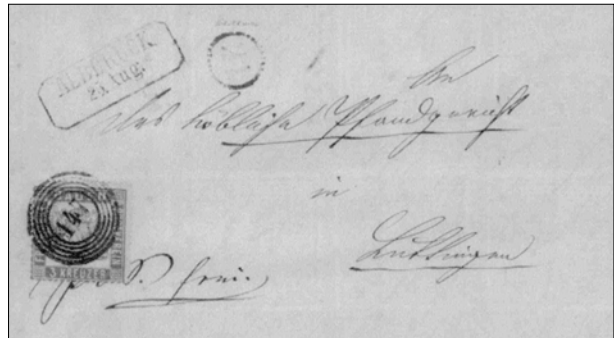 ALBBRUCK
23 Aug.
An
das löbliche Pfandgericht
in
Luttingen
147
3 KREUZER
frei.